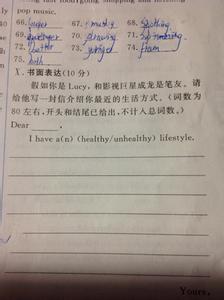 pop music.
66. 67. 68.
69. 70. drawing 71. swimming
72. 73. 74. from
75. both
X. 书面表达(10分)
假如你是 Lucy，和影视巨星成龙是笔友。请
给他写一封信介绍你最近的生活方式。(词数为
80 左右，开头和结尾已给出，不计入总词数。)
Dear ______,
I have a(n) (healthy/unhealthy) lifestyle.
Yours,